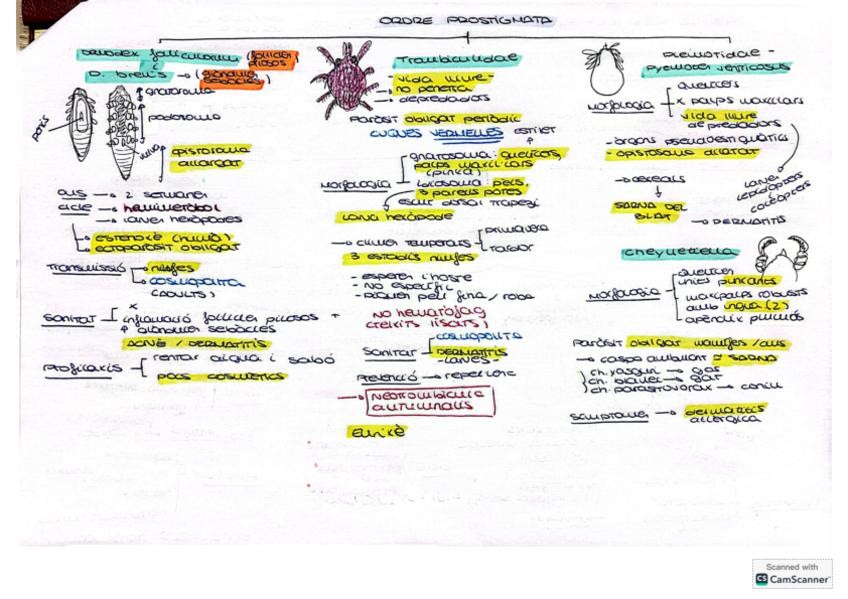 ORDRE PROSTIGMATA
Demodex folliculorum (fol·licles pilosos)
i
D. brevis → (glàndules sebàcies)
→ gnatosoma
→ podosoma
potes
→ opistosoma allargat
ous → 2 setmanes
cicle → hemimetàbol
→ larves hexàpodes
→ estenoxè (humà)
→ ectoparàsit obligat
Transmissió → nimfes
→ cosmopolita
(ADULTS)
Sanitat
x inflamació fol·licles pilosos +
glàndules sebàcies
ACNE / DERMATITIS
Profilaxis
rentar aigua i sabó
pocs cosmètics
Trombiculidae
- vida lliure -
- no penetra
- depredadors
Paràsit obligat periòdic
CUQUES VERMELLES
estilet
Morfologia
gnatosoma: quelícers,
palps maxil·lars
(pinça)
idiosoma: pels,
3 parells potes
escut dorsal trapezi
Larva hexàpode
→ climes temperats → primavera
→ tardor
3 estadis nimfes
- esperen l'hoste
- No específic
- piquen pell fina / roba
NO hematòfag
(teixits lisats)
Sanitat → cosmopolita
→ DERMATITIS
- larves -
Prevenció → repel·lent
→ Neotrombicula
autumnalis
Eurixè
Piemotidae -
Pyemotes ventricosus
Morfologia
quelícers
x palps maxil·lars
vida lliure
depredadors
- òrgans pseudostigmàtics
- opistosoma dilatat
larves
lepidòpters
coleòpters
→ cereals
↓
SARNA DEL
BLAT
→ DERMATITIS
Cheyletiella
Morfologia
quelícer
ungles punxants
maxipalps robusts
amb ungla (2)
apèndix plumós
Paràsit obligat mamífers / aus
→ caspa ambulant = SARNA
ch. yasguri → gos
ch. blakei → gat
ch. parasitovorax → conill
Símptomes → dermatitis
al·lèrgica
Scanned with
CS CamScanner